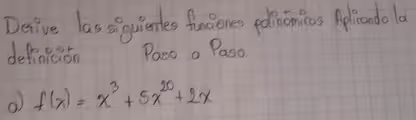 Derive las siguientes funciones polinómicas Aplicando la
definición Paso a Paso
a) f(x) = x³ + 5x²⁰ + 2x